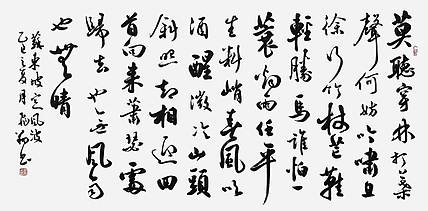 莫聽穿林打葉
聲何妨吟嘯且
徐行竹杖芒鞋
輕勝馬誰怕一
蓑烟雨任平
生料峭春風吹
酒醒微冷山頭
斜照却相迎回
首向來蕭瑟處
歸去也無風雨
也無晴
蘇東坡定風波
乙巳夏月